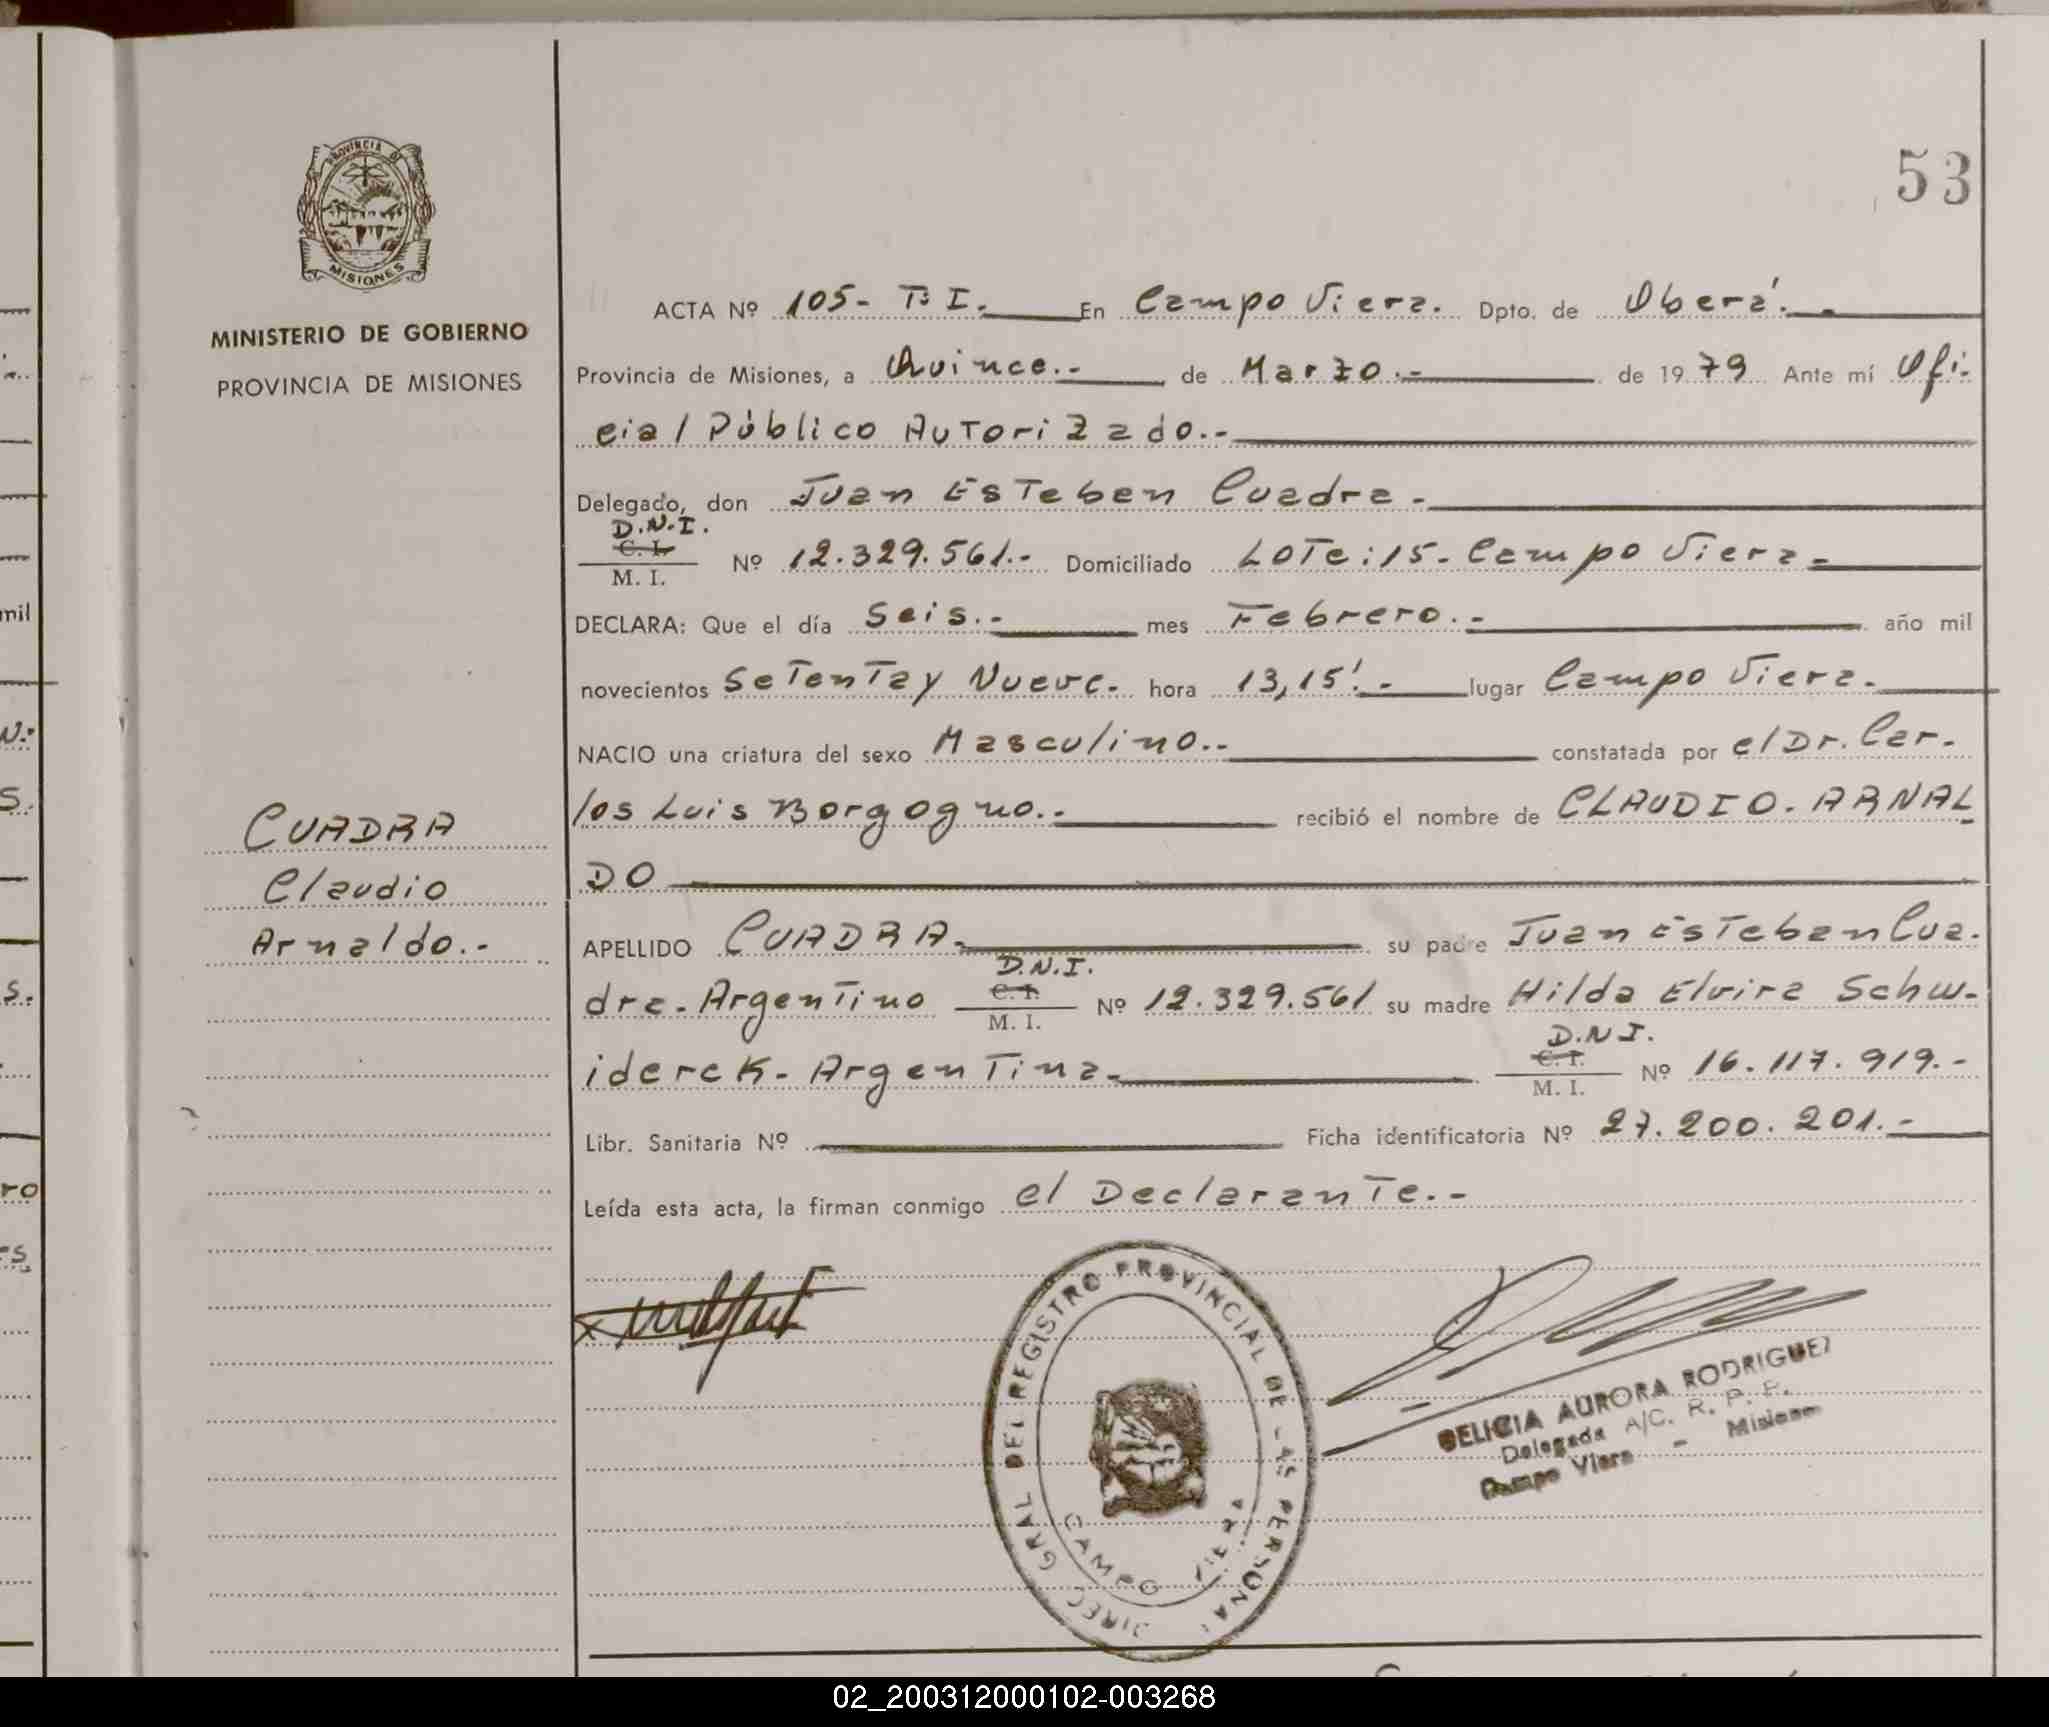 53
PROVINCIA DE
MISIONES
MINISTERIO DE GOBIERNO
PROVINCIA DE MISIONES
ACTA Nº 105- Tº I. En Campo Viera. Dpto. de Oberá.-
Provincia de Misiones, a Quince.- de Marzo.- de 1979 Ante mí Ofi-
cial Público Autorizado.-
Delegado, don Juan Esteban Cuadra.-
D.N.I.
C. I.
M. I. Nº 12.329.561.- Domiciliado Lote:15- Campo Viera-
DECLARA: Que el día Seis.- mes Febrero.- año mil
novecientos Setenta y Nueve. hora 13,15'.- lugar Campo Viera.
NACIO una criatura del sexo Masculino.- constatada por el Dr. Car-
los Luis Borgogno.- recibió el nombre de CLAUDIO. ARNAL
DO
CUADRA
Claudio
Arnaldo.-
APELLIDO CUADRA. su padre Juan Esteban Cua-
D.N.I.
dra- Argentino C. I. M. I. Nº 12.329.561 su madre Hilda Elvira Schw-
D.N.I.
iderck- Argentina- C. I. M. I. Nº 16.117.919.-
Libr. Sanitaria Nº Ficha identificatoria Nº 27.200.201.-
Leída esta acta, la firman conmigo el Declarante.-
DIREC. GRAL DEL REGISTRO PROVINCIAL DE LAS PERSONAS
CAMPO VIERA
DELICIA AURORA RODRIGUEZ
Delegada A/C. R. P. P.
Campo Viera - Misiones
02_200312000102-003268